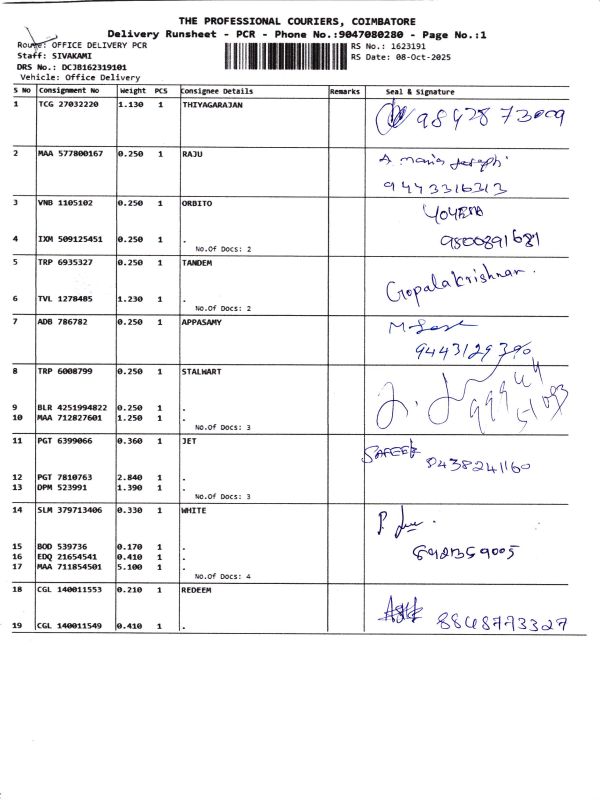 THE PROFESSIONAL COURIERS, COIMBATORE
Delivery Runsheet - PCR - Phone No.:9047080280 - Page No.:1
Route: OFFICE DELIVERY PCR
Staff: SIVAKAMI
DRS No.: DCJB162319101
Vehicle: Office Delivery
RS No.: 1623191
RS Date: 08-Oct-2025
S No Consignment No Weight PCS Consignee Details Remarks Seal & Signature
1 TCG 27032220 1.130 1 THIYAGARAJAN
2 MAA 577800167 0.250 1 RAJU
9443316313
3 VNB 1105102 0.250 1 ORBITO
4 IXM 509125451 0.250 1 .
No.Of Docs: 2
9500891681
5 TRP 6935327 0.250 1 TANDEM
Gopalakrishnan.
6 TVL 1278485 1.230 1 .
No.Of Docs: 2
7 ADB 786782 0.250 1 APPASAMY
8 TRP 6008799 0.250 1 STALWART
9 BLR 4251994822 0.250 1 .
10 MAA 712827601 1.250 1 .
No.Of Docs: 3
11 PGT 6399066 0.360 1 JET
12 PGT 7810763 2.840 1 .
13 DPM 523991 1.390 1 .
No.Of Docs: 3
14 SLM 379713406 0.330 1 WHITE
15 BOD 539736 0.170 1 .
16 EDQ 21654541 0.410 1 .
17 MAA 711854501 5.100 1 .
No.Of Docs: 4
18 CGL 140011553 0.210 1 REDEEM
8848773327
19 CGL 140011549 0.410 1 .